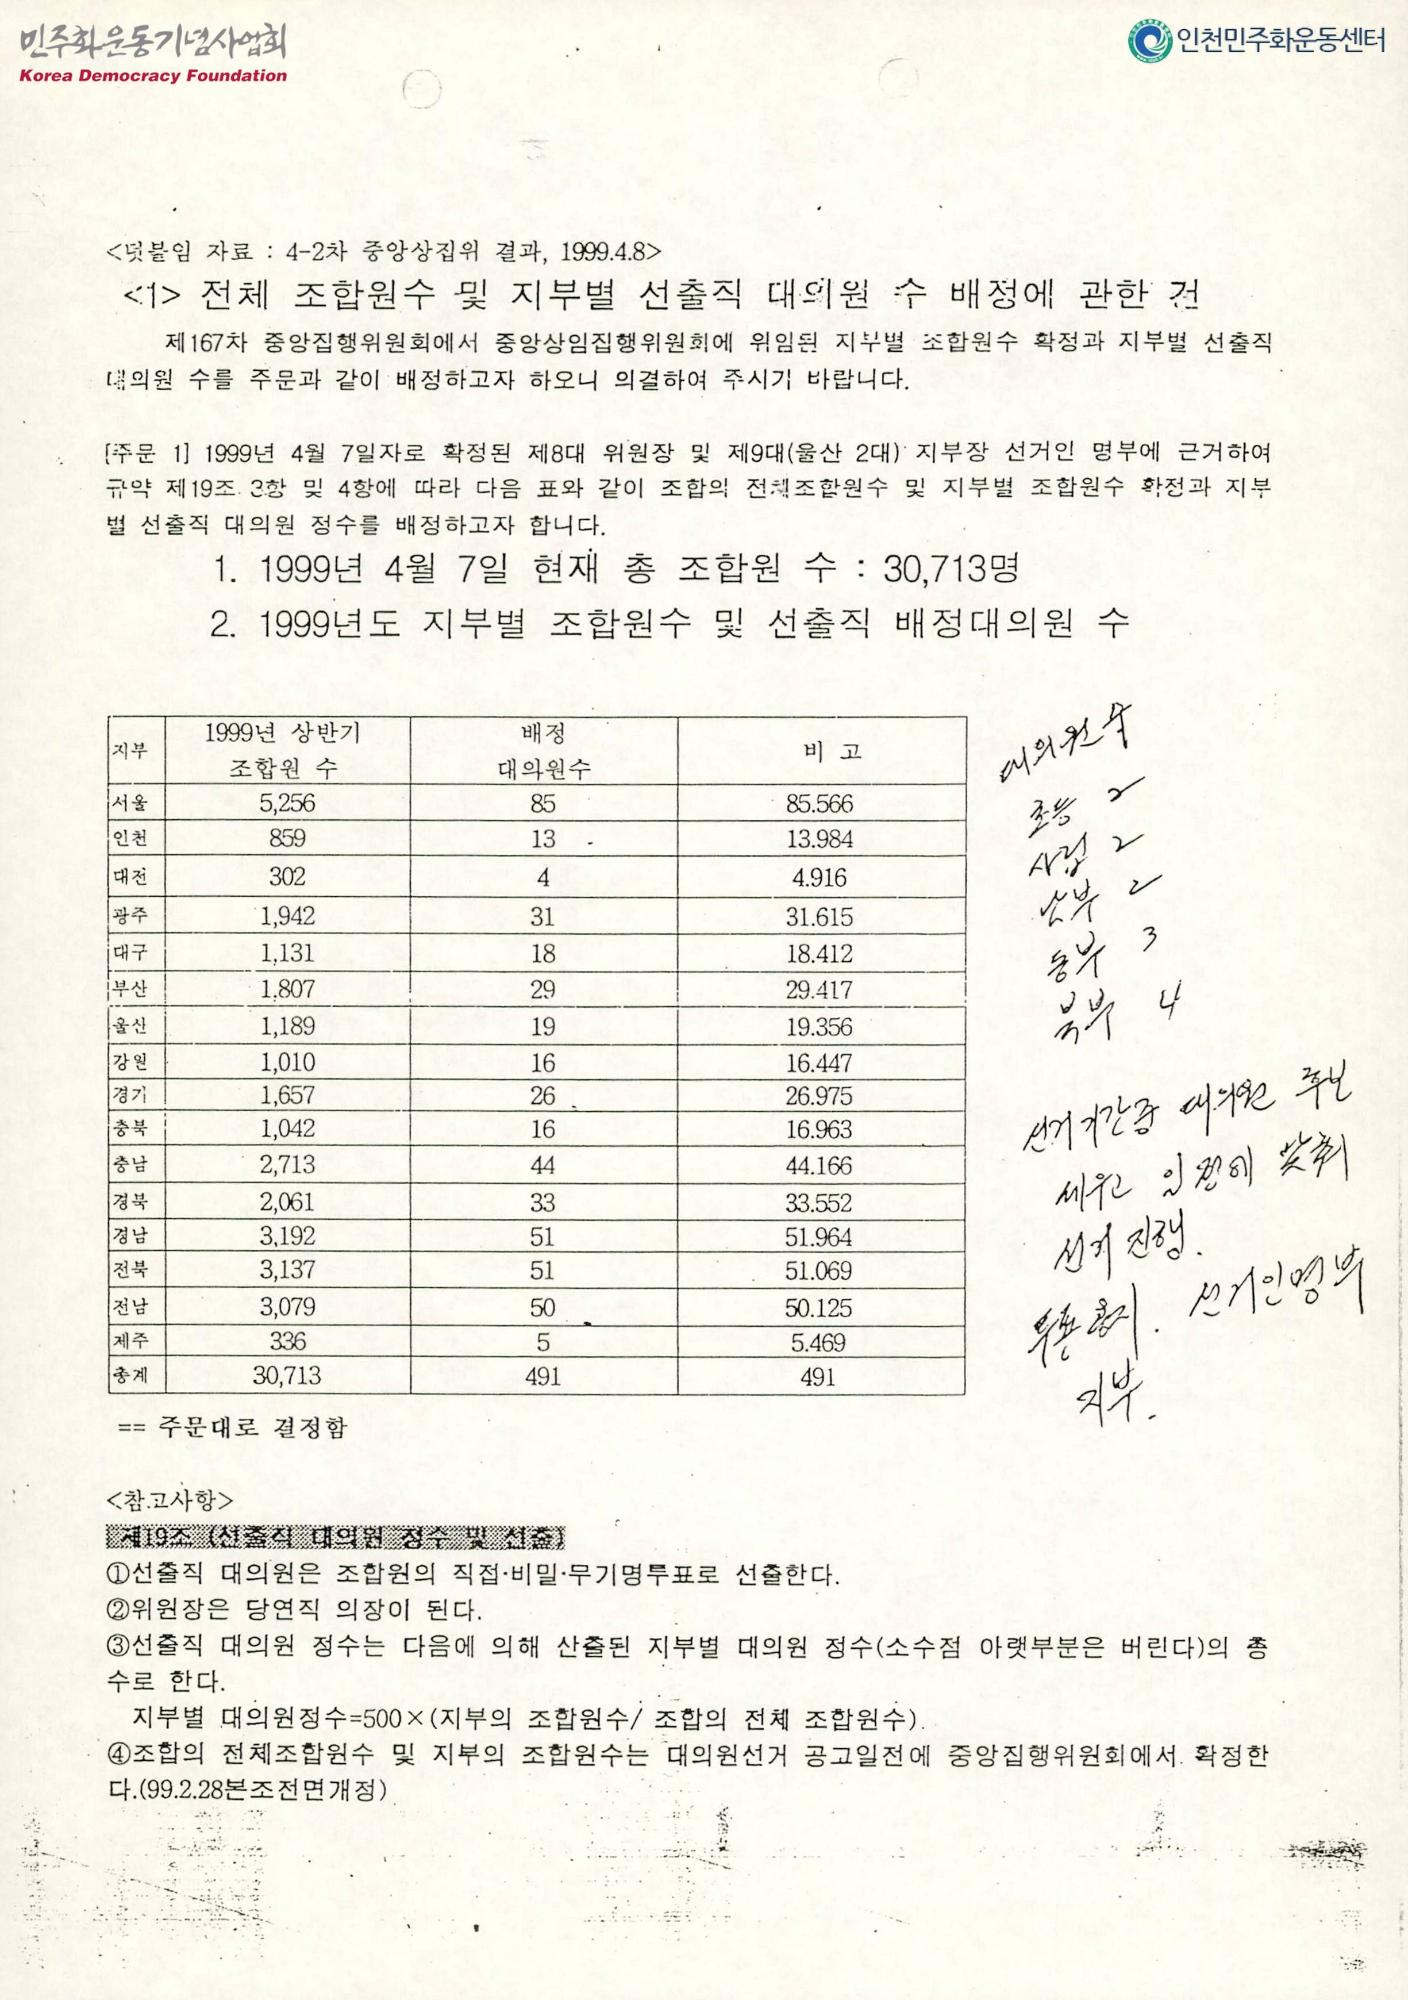 민주화운동기념사업회
Korea Democracy Foundation
인천민주화운동센터
<덧붙임 자료 : 4-2차 중앙상집위 결과, 1999.4.8>
<1> 전체 조합원수 및 지부별 선출직 대의원 수 배정에 관한 건
제167차 중앙집행위원회에서 중앙상임집행위원회에 위임된 지부별 조합원수 확정과 지부별 선출직
대의원 수를 주문과 같이 배정하고자 하오니 의결하여 주시기 바랍니다.
[주문 1] 1999년 4월 7일자로 확정된 제8대 위원장 및 제9대(울산 2대) 지부장 선거인 명부에 근거하여
규약 제19조 3항 및 4항에 따라 다음 표와 같이 조합의 전체조합원수 및 지부별 조합원수 확정과 지부
별 선출직 대의원 정수를 배정하고자 합니다.
1. 1999년 4월 7일 현재 총 조합원 수 : 30,713명
2. 1999년도 지부별 조합원수 및 선출직 배정대의원 수
지부 1999년 상반기 조합원 수 배정 대의원수 비 고
서울 5,256 85 85.566
인천 859 13 13.984
대전 302 4 4.916
광주 1,942 31 31.615
대구 1,131 18 18.412
부산 1,807 29 29.417
울산 1,189 19 19.356
강원 1,010 16 16.447
경기 1,657 26 26.975
충북 1,042 16 16.963
충남 2,713 44 44.166
경북 2,061 33 33.552
경남 3,192 51 51.964
전북 3,137 51 51.069
전남 3,079 50 50.125
제주 336 5 5.469
총계 30,713 491 491
대의원수
초등 2
사립 2
남부 2
동부 3
북부 4
선거기간중 대의원 후보
세우고 일정에 맞춰
선거 진행.
선거인명부
지부.
== 주문대로 결정함
<참고사항>
제19조 (선출직 대의원 정수 및 선출)
①선출직 대의원은 조합원의 직접·비밀·무기명투표로 선출한다.
②위원장은 당연직 의장이 된다.
③선출직 대의원 정수는 다음에 의해 산출된 지부별 대의원 정수(소수점 아랫부분은 버린다)의 총
수로 한다.
지부별 대의원정수=500×(지부의 조합원수/ 조합의 전체 조합원수).
④조합의 전체조합원수 및 지부의 조합원수는 대의원선거 공고일전에 중앙집행위원회에서 확정한
다.(99.2.28본조전면개정)